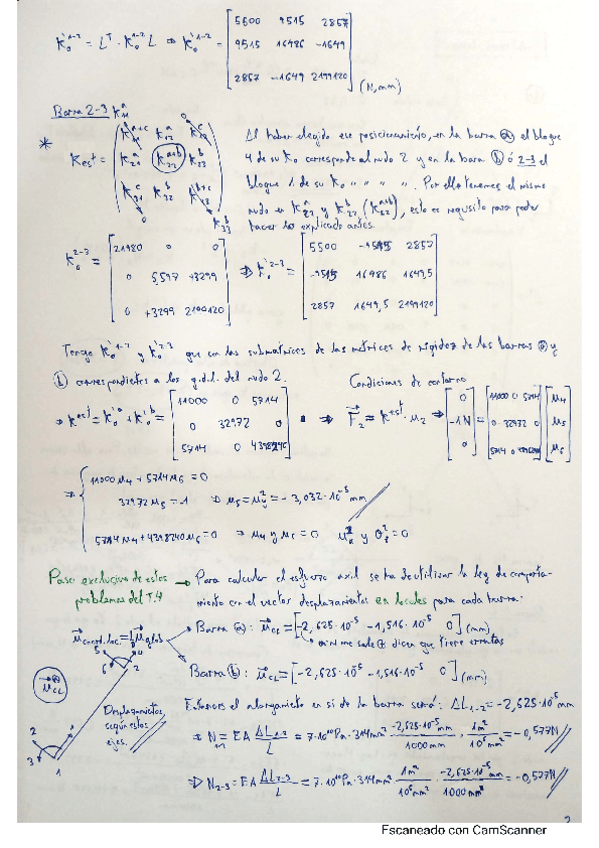 K₀'¹⁻² = Lᵀ · K₀¹⁻² L ⇒ K₀'¹⁻² = [5500 9515 2857
9515 16486 -1649
2857 -1649 2199120] (N,mm)
Barra 2-3
* Kest = (K₁₁ᵃ⁺ᶜ K₁₂ᵃ K₁₃ᶜ
K₂₁ᵃ K₂₂ᵃ⁺ᵇ K₂₃ᵇ
K₃₁ᶜ K₃₂ᵇ K₃₃ᵇ⁺ᶜ)
Al haber elegido ese posicionamiento, en la barra ⓐ el bloque
4 de su K₀ corresponde al nudo 2 y en la barra ⓑ ó 2-3 el
bloque 1 de su K₀ " " " ". Por ello tenemos el mismo
nudo en K₂₂ᵃ y K₂₂ᵇ (K₂₂ᵃ⁺ᵇ), esto es requisito para poder
hacer lo explicado antes.
K₀²⁻³ = [21980 0 0
0 5,597 +3299
0 +3299 2199120] ⇒ K₀'²⁻³ = [5500 -9515 2857
-9515 16986 1649,5
2857 1649,5 2199120]
Tengo K₀'¹⁻² y K₀'²⁻³ que son las submatrices de las matrices de rigidez de las barras ⓐ y
ⓑ correspondientes a los g.d.l. del nudo 2.
Condiciones de contorno
⇒ Kest = K₀'ᵃ + K₀'ᵇ = [11000 0 5714
0 32972 0
5714 0 4398240] ⇒ F₂ = Kest · u₂ ⇒ [0
-1N
0] = [11000 0 5714
0 32972 0
5714 0 4398240] [u₄
u₅
u₆]
⇒ { 11000 u₄ + 5714 u₆ = 0
32972 u₅ = -1 ⇒ u₅ = u₂ʸ = -3,032·10⁻⁵ mm
5714 u₄ + 4398240 u₆ = 0 ⇒ u₄ y u₆ = 0 u₂ˣ y θ₂ᶻ = 0
Paso exclusivo de estos → Para calcular el esfuerzo axil se ha de utilizar la ley de comporta-
problemas del T.4 miento con el vector desplazamientos en locales para cada barra:
u coord. loc. = L u glob → Barra ⓐ: u CL = [-2,625·10⁻⁵ -1,516·10⁻⁵ 0] (mm)
a mi me sale ⊕ dicen que tiene erratas
Barra ⓑ: u CL = [-2,625·10⁻⁵ -1,516·10⁻⁵ 0] (mm)
u CL
5
6
4
2
3
1
Desplazamientos
según estos
ejes.
Entonces el alargamiento en sí de la barra será: ΔL₁₋₂ = -2,625·10⁻⁵ mm
⇒ N₁₋₂ = EA ΔL₁₋₂/L = 7·10¹⁰Pa · 314mm² · -2,625·10⁻⁵mm/1000mm · 1m²/10⁶mm² = -0,577N
⇒ N₂₋₃ = EA ΔL₂₋₃/L = 7·10¹⁰Pa · 314mm² · 1m²/10⁶mm² · -2,625·10⁻⁵mm/1000mm = -0,577N
2
Escaneado con CamScanner